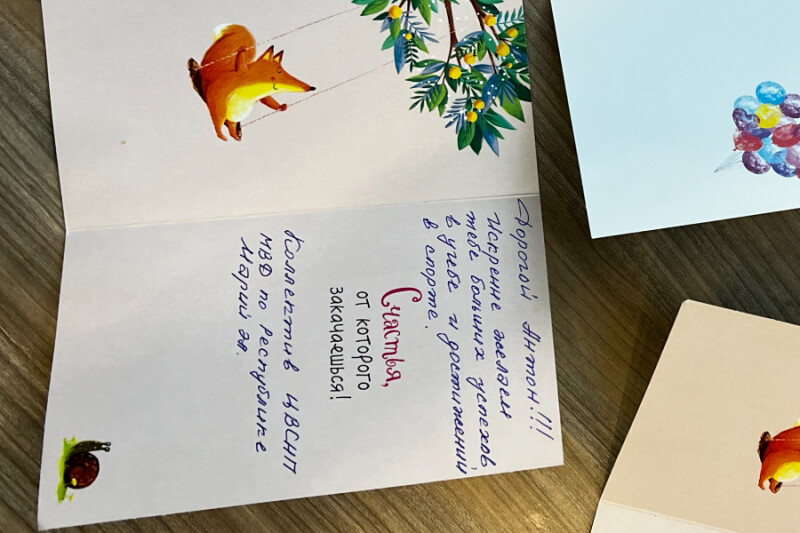 Дорогой Антон!!!
Искренне желаем
тебе больших успехов,
в учебе и достижений
в спорте.
Счастья,
от которого
закачаешься!
Коллектив ЦВСНП
МВД по Республике
Марий Эл.